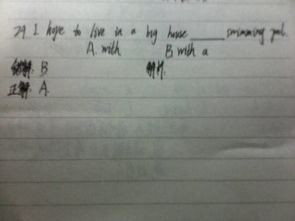 29. I hope to live in a big house ______ swimming pool.
A. with B with a
错解: B 解析:
正解: A.